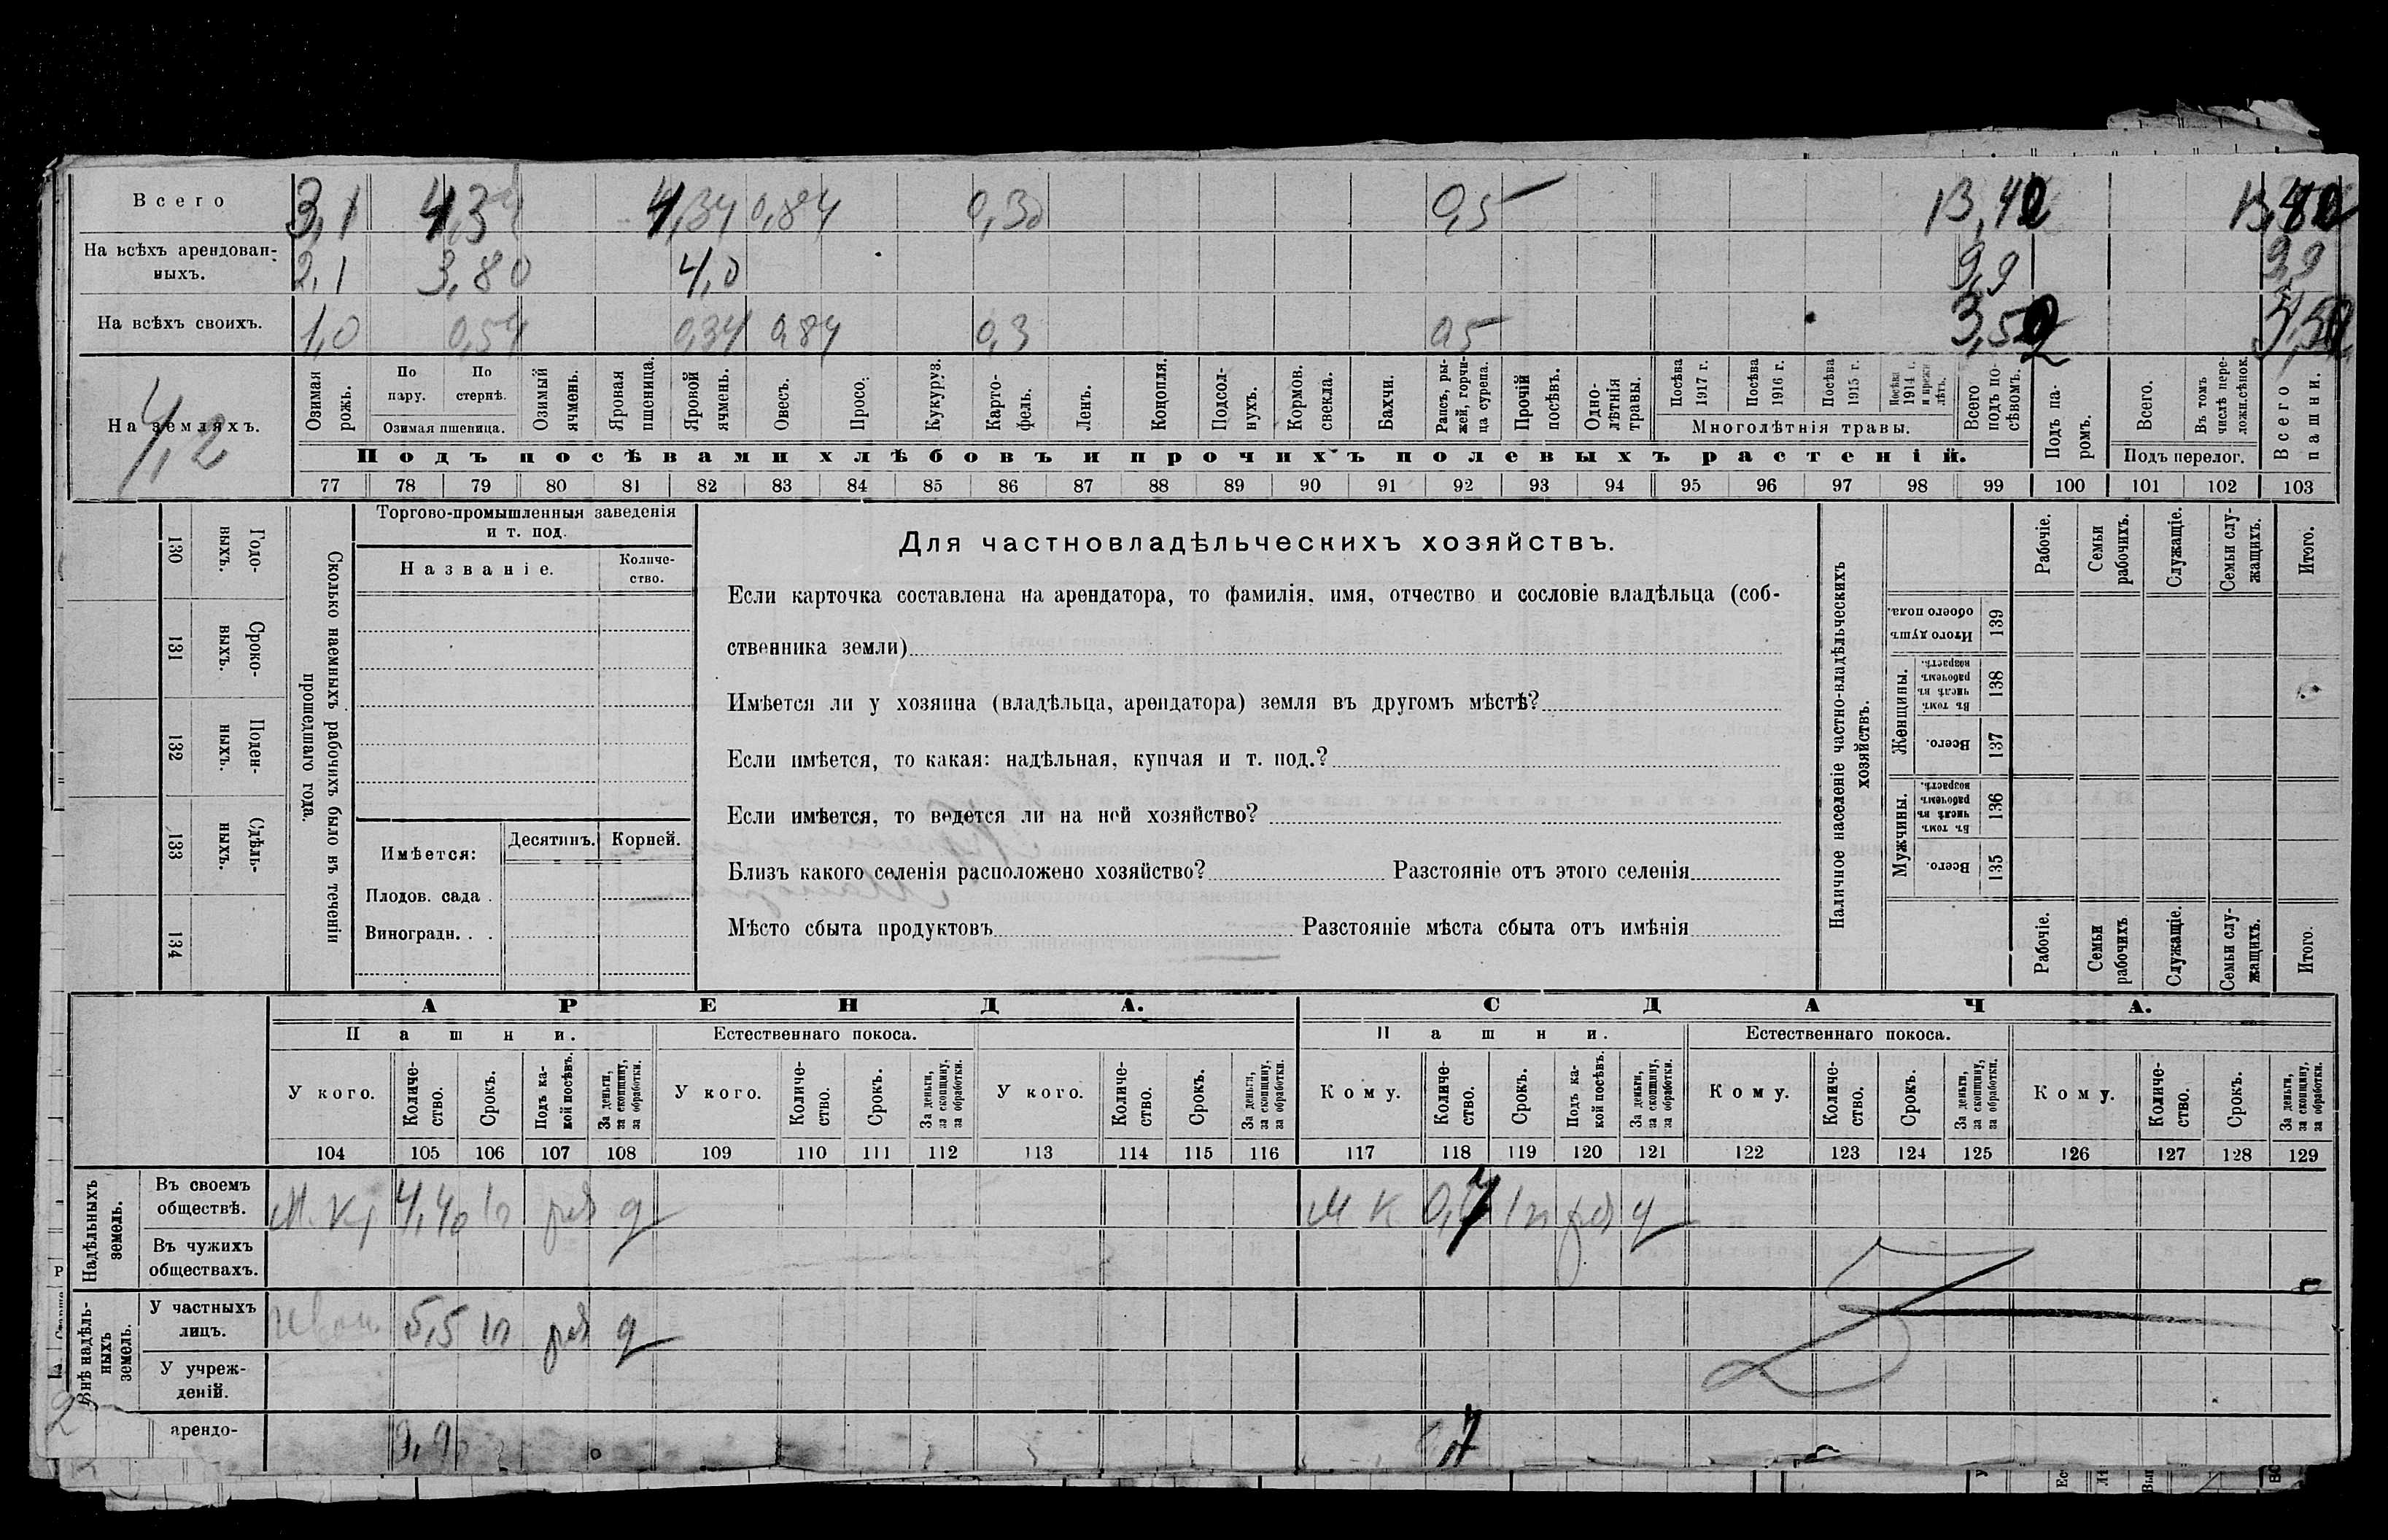 Всего 3,1 4,34 4,34 0,84 0,30 0,5 13,42
На всѣхъ арендован-
ныхъ. 2,1 3,80 4,0 9,9 9,9
На всѣхъ своихъ. 1,0 0,54 0,34 0,84 0,3 0,5 3,52
На земляхъ.
4,2
Озимая рожь.
По пару.
По стернѣ.
Озимая пшеница.
Озимый ячмень.
Яровая пшеница.
Яровой ячмень.
Овесъ.
Просо.
Кукуруз.
Карто-
фель.
Ленъ.
Конопля.
Подсол-
нухъ.
Кормов. свекла.
Бахчи.
Рапсъ, ры-
жей, горчи-
ца сурепа.
Прочій посѣвъ.
Одно-
лѣтнія травы.
Посѣва 1917 г.
Посѣва 1916 г.
Посѣва 1915 г.
Посѣва 1914 г. и прежн. лѣтъ.
Многолѣтнія травы.
Всего подъ по-
сѣвомъ.
Подъ па-
ромъ.
Всего.
Въ томъ числѣ пере-
ложн.сѣнок.
Подъ перелог.
Всего пашни.
Подъ посѣвами хлѣбовъ и прочихъ полевыхъ растеній.
77 78 79 80 81 82 83 84 85 86 87 88 89 90 91 92 93 94 95 96 97 98 99 100 101 102 103
130 Годо-
ныхъ.
131 Сроко-
выхъ.
132 Поден-
ныхъ.
133 Сдѣль-
ныхъ.
134
Сколько наемныхъ рабочихъ было въ теченіи
прошедшаго года.
Торгово-промышленныя заведенія
и т. под.
Названіе.
Количе-
ство.
Имѣется:
Десятинъ.
Корней.
Плодов. сада .
Виноградн. . .
Для частновладѣльческихъ хозяйствъ.
Если карточка составлена на арендатора, то фамилія, имя, отчество и сословіе владѣльца (соб-
ственника земли)
Имѣется ли у хозяина (владѣльца, арендатора) земля въ другомъ мѣстѣ?
Если имѣется, то какая: надѣльная, купчая и т. под.?
Если имѣется, то ведется ли на ней хозяйство?
Близъ какого селенія расположено хозяйство? Разстояніе отъ этого селенія
Мѣсто сбыта продуктовъ Разстояніе мѣста сбыта отъ имѣнія
Наличное населеніе частно-владѣльческихъ
хозяйствъ.
Рабочіе.
Семьи рабочихъ.
Служащіе.
Семьи слу-
жащихъ.
Итого.
Итого душъ обоего пола. 139
Женщины.
Въ томъ числѣ въ рабочемъ возрастѣ. 138
Всего. 137
Мужчины.
Въ томъ числѣ въ рабочемъ возрастѣ. 136
Всего. 135
Рабочіе.
Семьи рабочихъ
Служащіе.
Семьи слу-
жащихъ.
Итого.
АРЕНДА. СДАЧА.
Пашни. Естественнаго покоса. Пашни. Естественнаго покоса.
У кого.
Количе-
ство.
Срокъ.
Подъ ка-
кой посѣвъ.
За деньги, за скопщину, за обработки.
У кого.
Количе-
ство.
Срокъ.
За деньги, за скопщину, за обработки.
У кого.
Количе-
ство.
Срокъ.
За деньги, за скопщину, за обработки.
Кому.
Количе-
ство.
Срокъ.
Подъ ка-
кой посѣвъ.
За деньги, за скопщину, за обработки.
Кому.
Количе-
ство.
Срокъ.
За деньги, за скопщину, за обработки.
Кому.
Количе-
ство.
Срокъ.
За деньги, за скопщину, за обработки.
104 105 106 107 108 109 110 111 112 113 114 115 116 117 118 119 120 121 122 123 124 125 126 127 128 129
Надѣльныхъ земель.
Въ своемъ
обществѣ. 4,40 М К
Въ чужихъ
обществахъ.
Внѣ надѣль-
ныхъ земель.
У частныхъ
лицъ. 5,5
У учреж-
деній.
арендо- 9,9